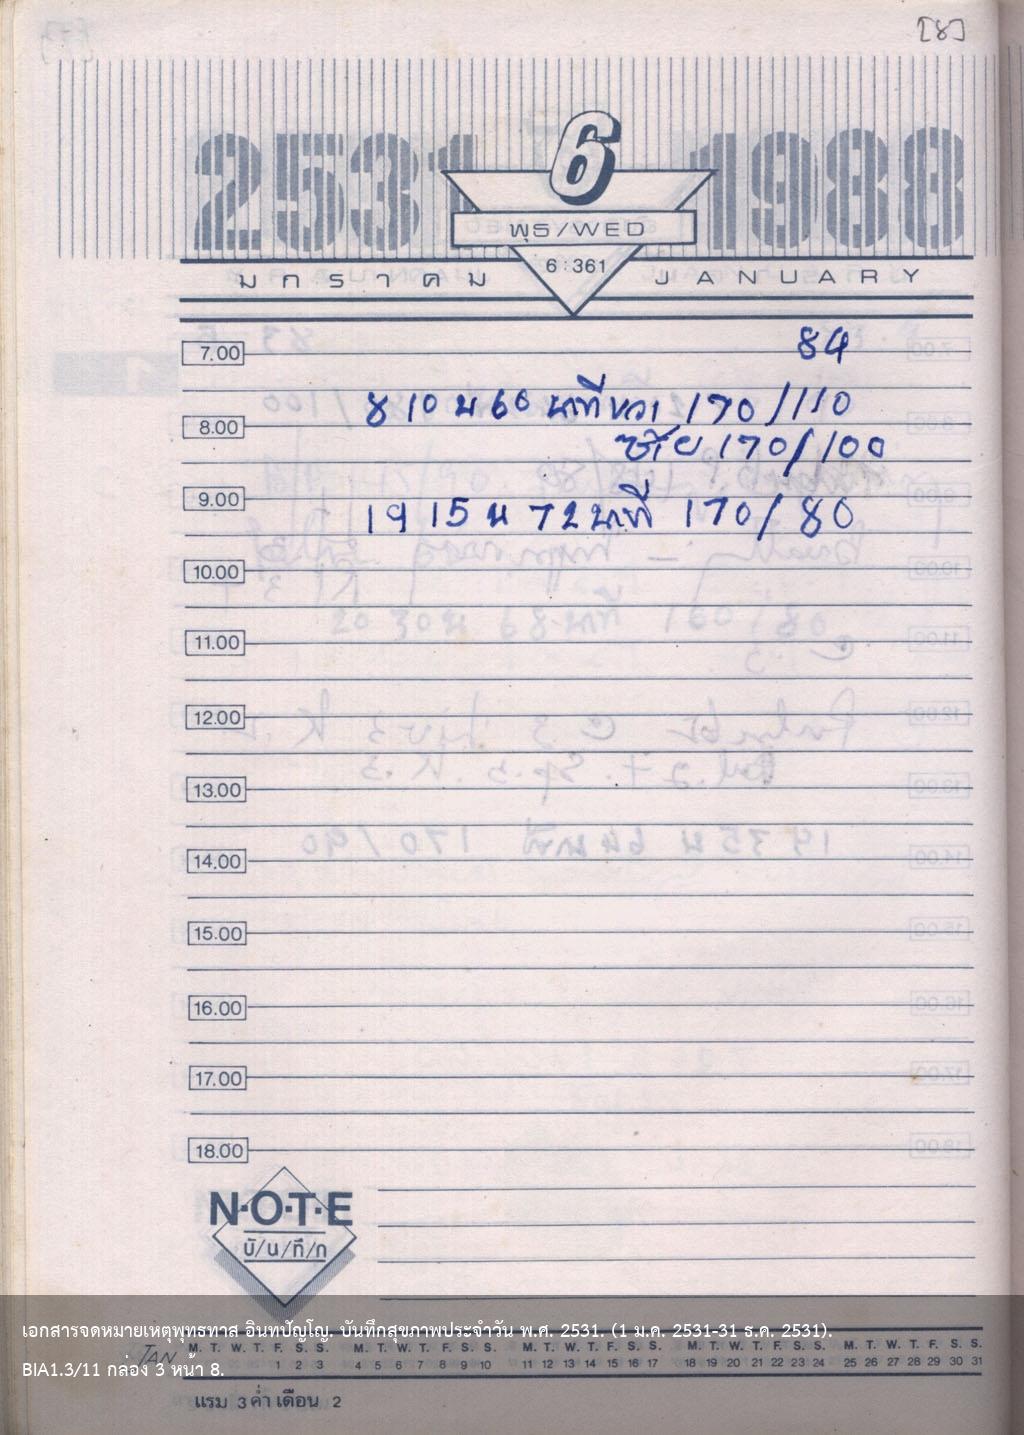 [8]
2531 1988
6
พุธ/WED
6:361
มกราคม JANUARY
7.00 84
8 10 น 60 นาที ขวา 170/110
8.00
ซ้าย 170/100
9.00
19 15 น 72 นาที 170/80
10.00
11.00
12.00
13.00
14.00
15.00
16.00
17.00
18.00
N·O·T·E
บั/น/ทึ/ก
เอกสารจดหมายเหตุพุทธทาส อินทปัญโญ. บันทึกสุขภาพประจำวัน พ.ศ. 2531. (1 ม.ค. 2531-31 ธ.ค. 2531).
JAN M. T. W. T. F. S. S. M. T. W. T. F. S. S. M. T. W. T. F. S. S. M. T. W. T. F. S. S. M. T. W. T. F. S. S.
1 2 3 4 5 6 7 8 9 10 11 12 13 14 15 16 17 18 19 20 21 22 23 24 25 26 27 28 29 30 31
BIA1.3/11 กล่อง 3 หน้า 8.
แรม 3 ค่ำ เดือน 2